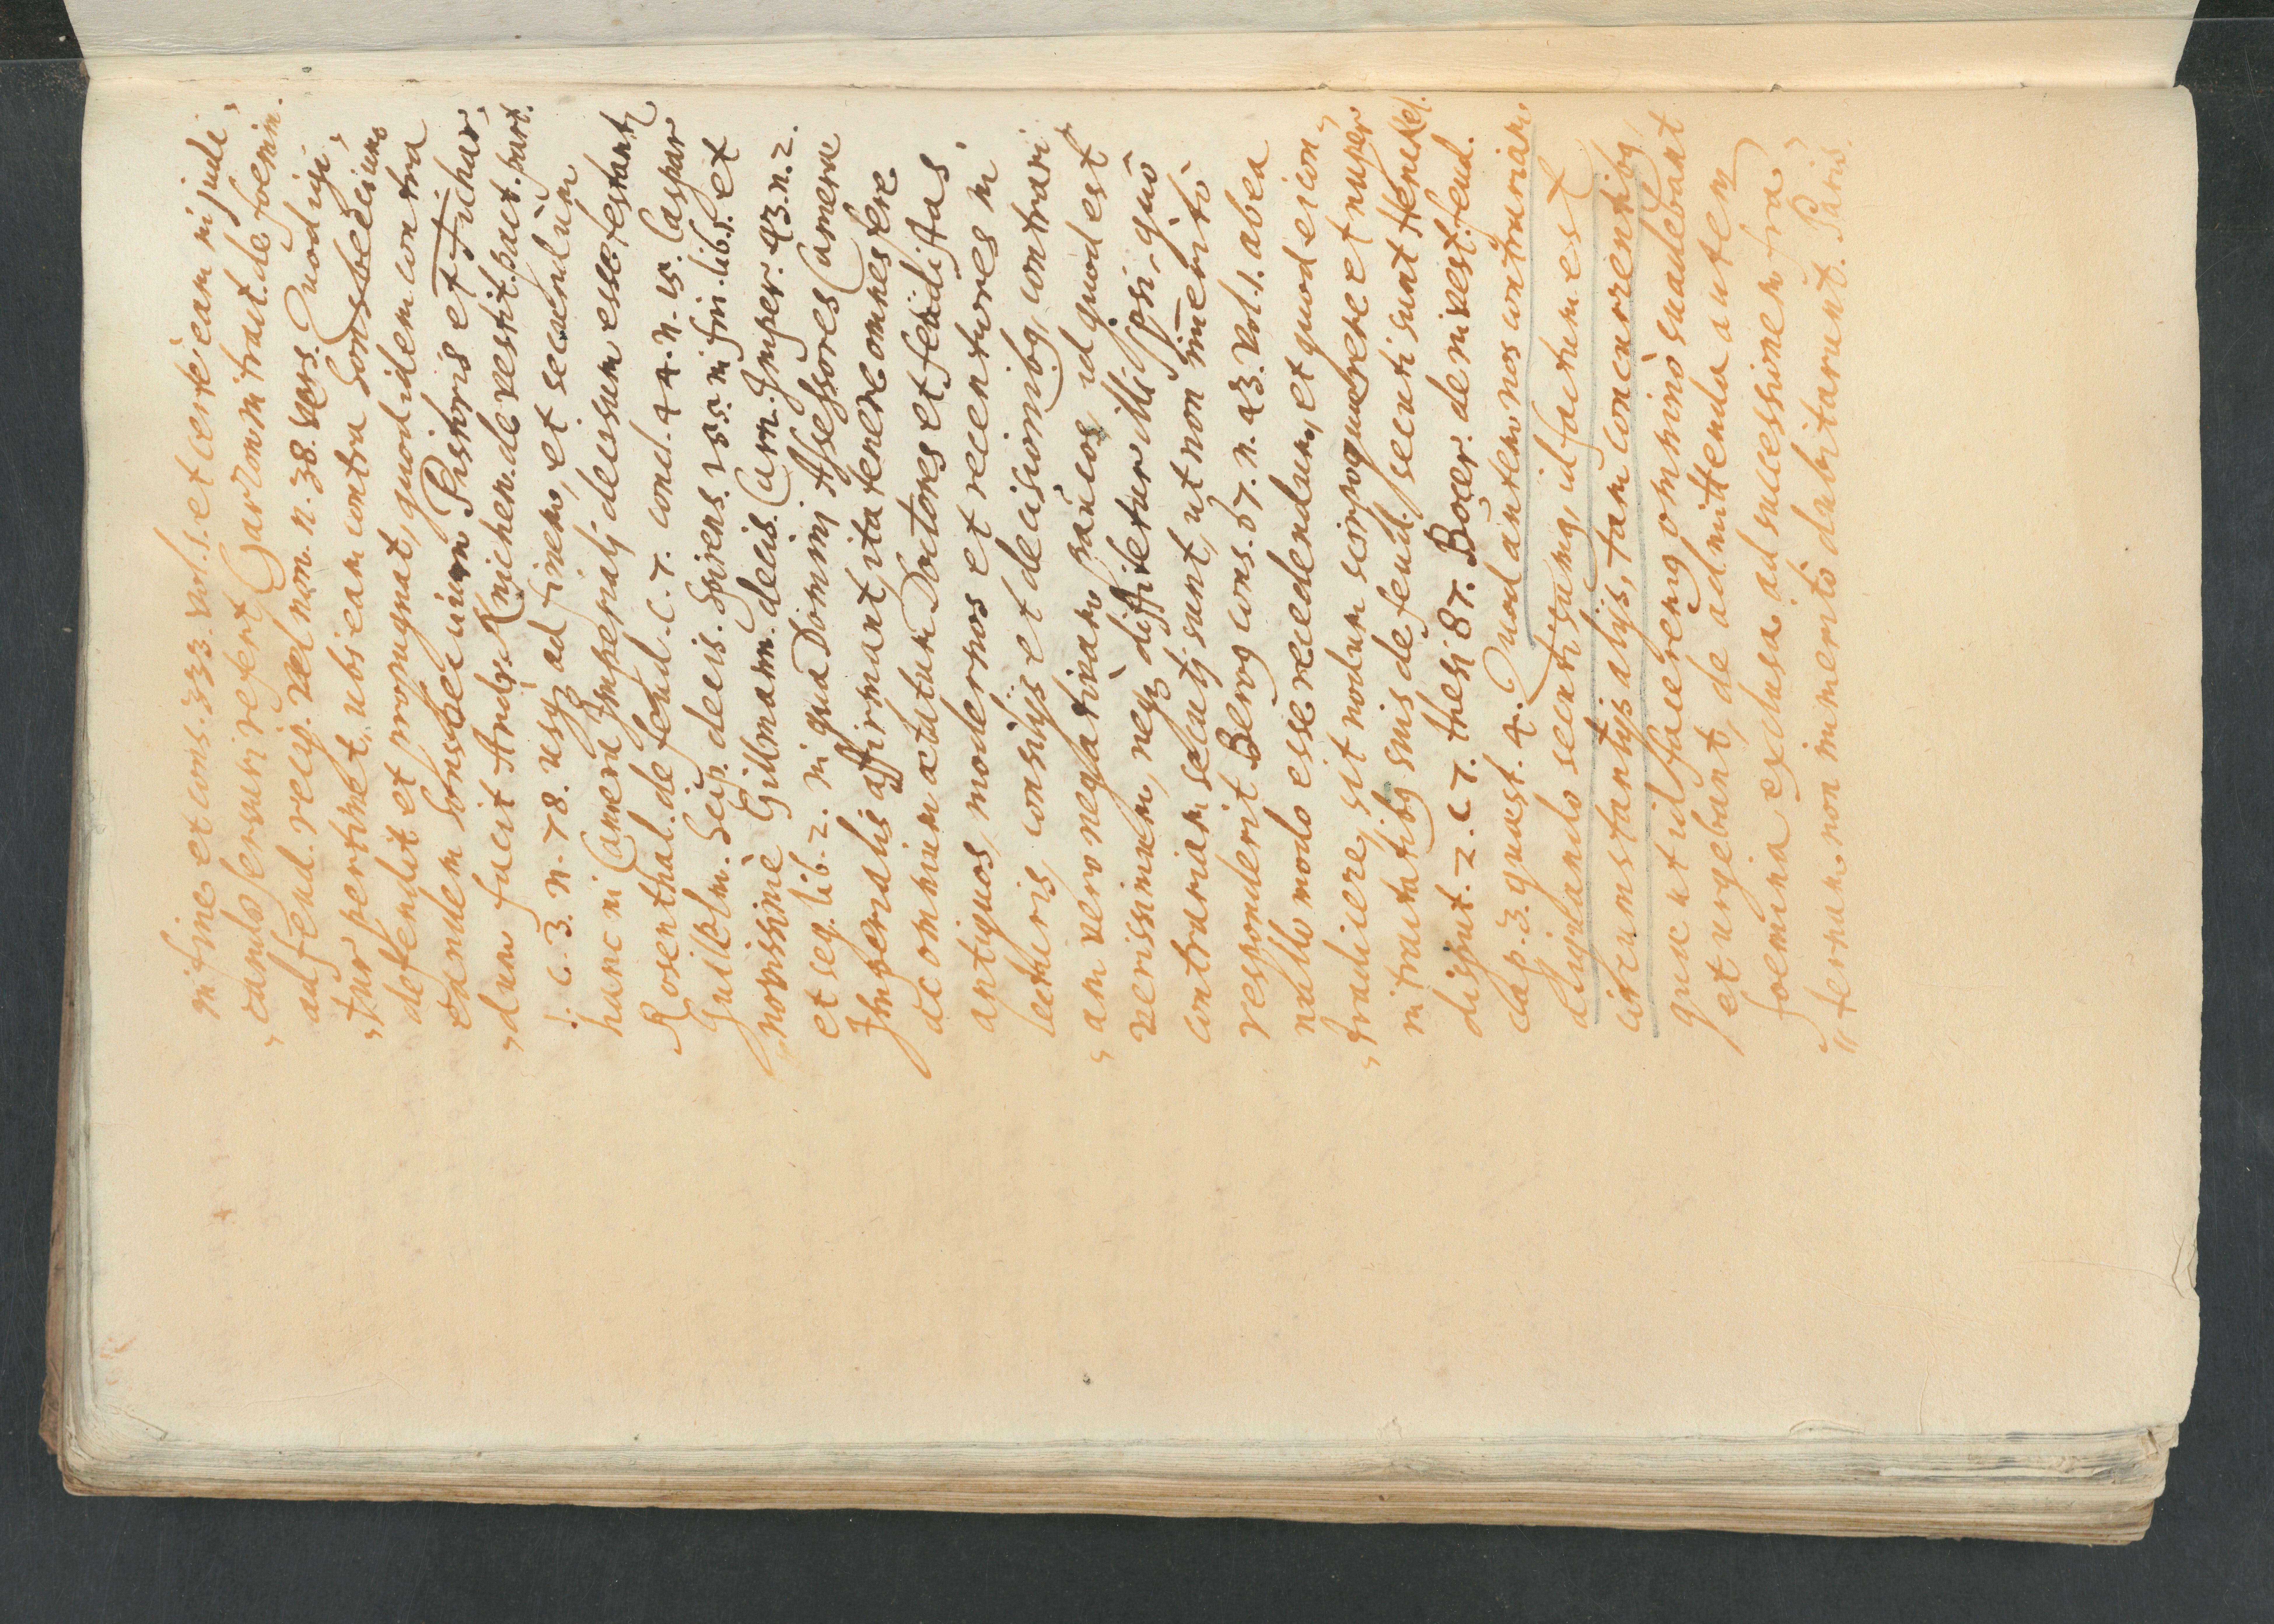 in fine et cons. 333. vol. 1. et certè eam in judi,
,, cando servari refert Garzon in tract. de foemin.
ad feud. recip. vel non. n. 38. vers. Quod igi,
,, tur pertinet, ubi eam contra Sonsbecium
defendit et propugnat, quod idem contra
eandem Sonsbecium Pistoris et Fichar,
,, dum facit Andr. Knichen. de vestit. pact. part.
1. c. 3. n. 78. usq3 ad finem, et secundum
hanc in Camera Imperialj decisum esse testantr
Rosenthal. de feud. c. 7. concl. 44. n. 15. Caspar
Guilelm. Scip. decis. Spirens. 155. in fin. lib. 1. et
novissimè Gilmann. decis. Cam. Imper. 43. n. 2.
et seq. lib. 2. in qua Dominj Assessores Camerae
Imperialis affirmant, ita tenere omnes fere
ac omnium aetatum Doctores et feudistas,
antiquos, modernos et recentiores in
lecturis, consilijs et decisionibg, contrari,
,, am vero negativam paucos, id quod est
verissimum, neq3 diffitetur illi ipsi, quò
contrariam secutj sunt, ut non im̄eritò
responderit Berog cons. 67. n. 43. vol. 1. ab ea
nullo modo esse recedendum, et quod ei con,
,, tradicere, sit nodum scirpoquaerere et nuper
in tractatibg suis de feud. secuti sunt Henikel.
disput. 2. c. 7. thesi 87. Bocer. de invest. feud.
cap. 3. quaest. 4. Quod autem nos contrariam
disputando secuti sumg, id factum est
circumstantijs alijs, tam concurrentibg,
quae ut id faceremg omninò suadebant
et urgebant, de admittenda autem
foemina exclusa ad successionem fra,
,, ternam non immeritò dubitarunt. Paris.